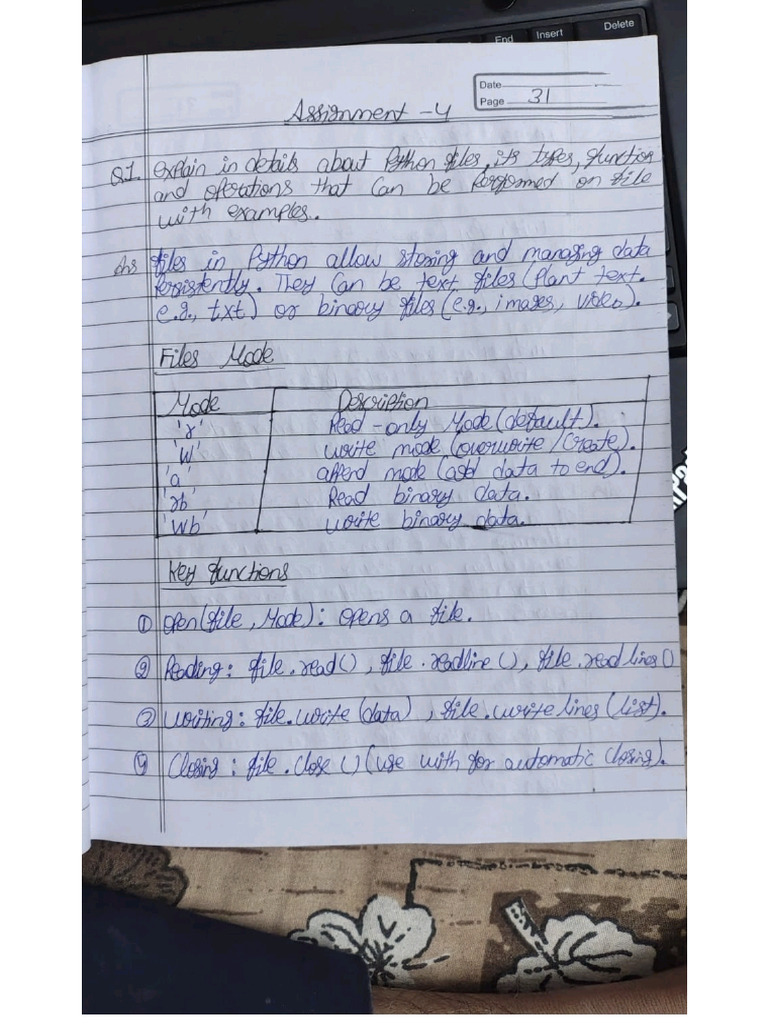 End Insert Delete
Date
Page 31
Assignment - 4
Q.1. Explain in details about Python files, its types, function
and operations that can be performed on file
with examples.
Ans files in Python allow storing and managing data
persistently. They can be text files (plant text.
e.g., txt) or binary files (e.g., images, video).
Files Mode
Mode Description
'r' Read-only Mode (default).
'w' write mode (overwrite / create).
'a' append mode (add data to end).
'rb' Read binary data.
'wb' write binary data.
Key functions
① open(file, Mode): opens a file.
② Reading: file.read(), file.readline(), file.readlines()
③ writing: file.write(data), file.writelines(list).
④ Closing: file.close() (use with for automatic closing).